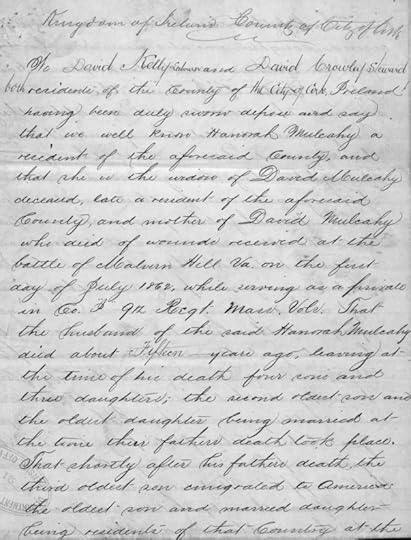 Kingdom of Ireland County of City of Cork
We David Kelly and David Crowley Steward
both residents of the County of the City of Cork, Ireland
having been duly sworn depose and say
that we well know Hanorah Mulcahy a
resident of the aforesaid County, and
that she is the widow of David Mulcahy
deceased, late a resident of the aforesaid
County, and mother of David Mulcahy
who died of wounds received at the
battle of Malvern Hill Va. on the first
day of July 1862, while serving as a private
in Co. F 9th Regt. Mass. Vols. That
the husband of the said Hanorah Mulcahy
died about Fifteen years ago, leaving at
the time of his death four sons and
three daughters; the second oldest son and
the oldest daughter being married at
the time their fathers death took place.
That shortly after his fathers death, the
third oldest son emigrated to America
the oldest son and married daughter
being residents of that Country at the